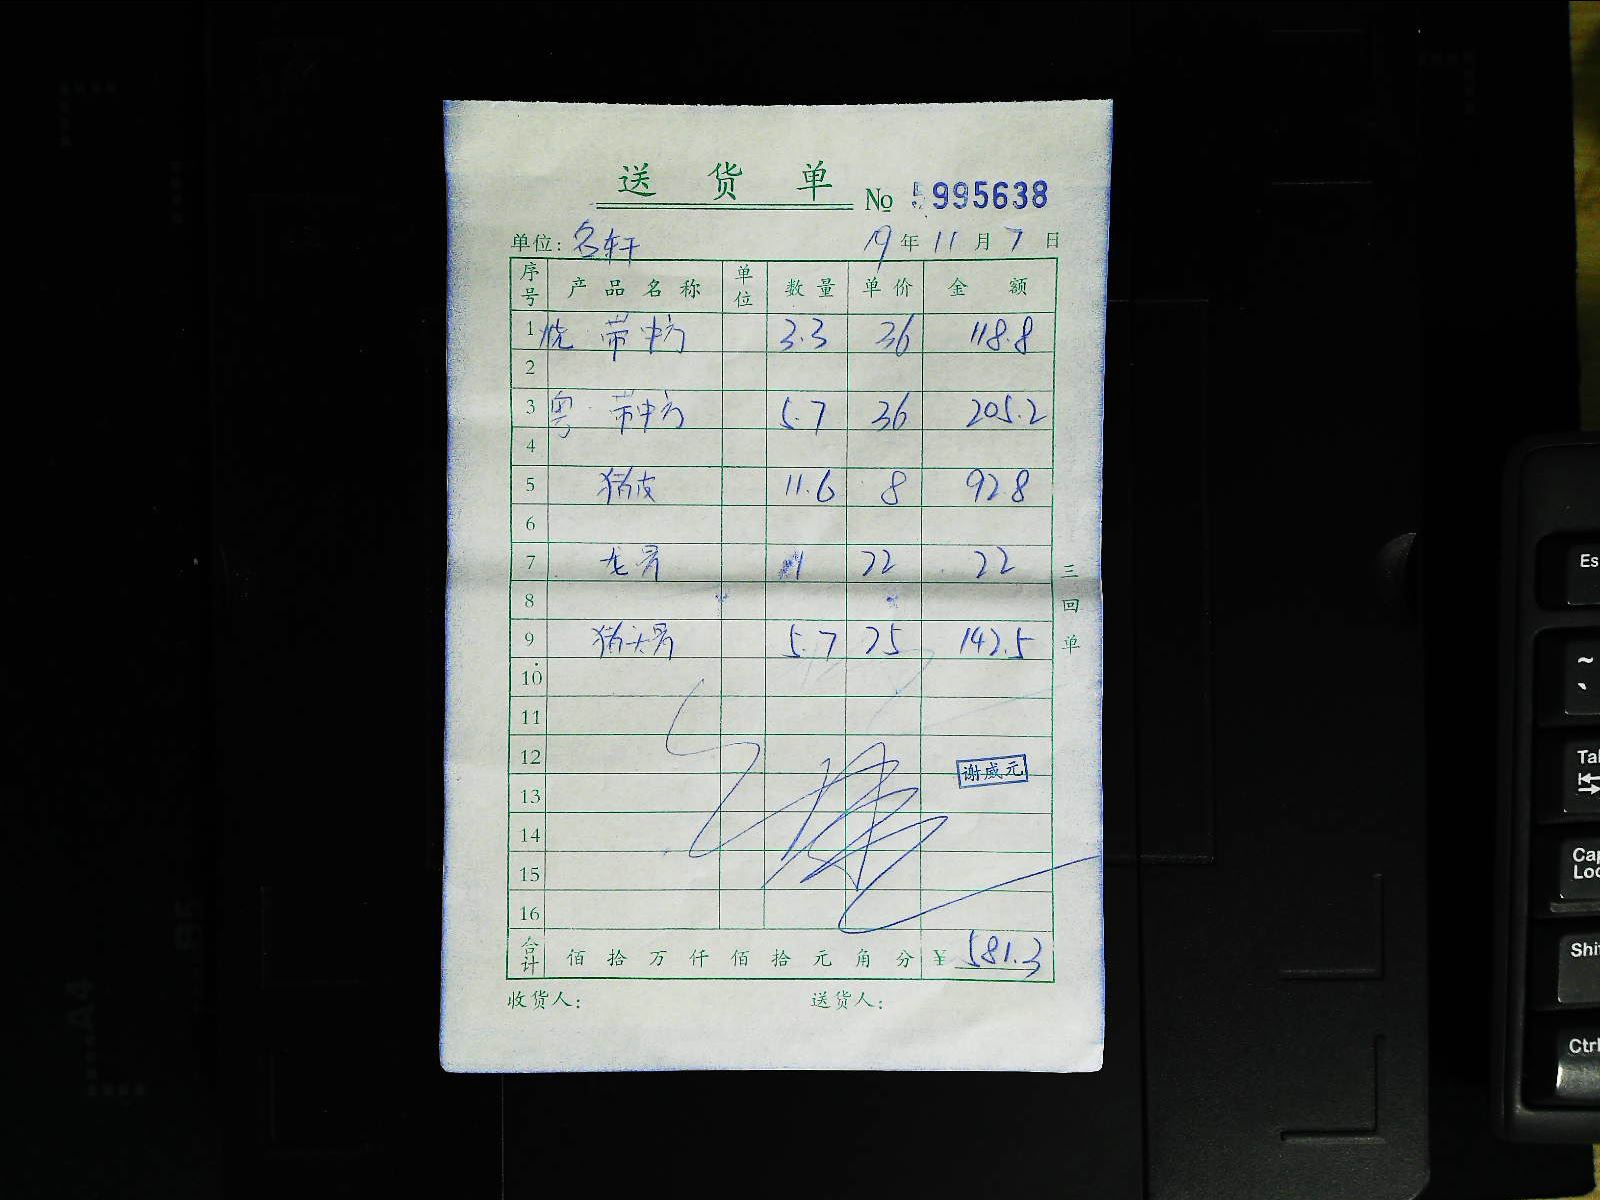 送货单
No 5995638
单位: 名轩 19年11月7日
序号 产品名称 单位 数量 单价 金额
1 烧 带中方 3.3 36 118.8
2
3 粤 带中方 5.7 36 205.2
4
5 猪皮 11.6 8 92.8
6
7 龙骨 1 22 22
8
9 猪头骨 5.7 25 142.5
10
11
12
13
14
15
16
谢威元
合计 佰拾万仟佰拾元角分 ¥ 581.3
收货人: 送货人:
三回单
Es
~
`
Tab
Cap
Loc
Shi
Ctrl
A4
B5